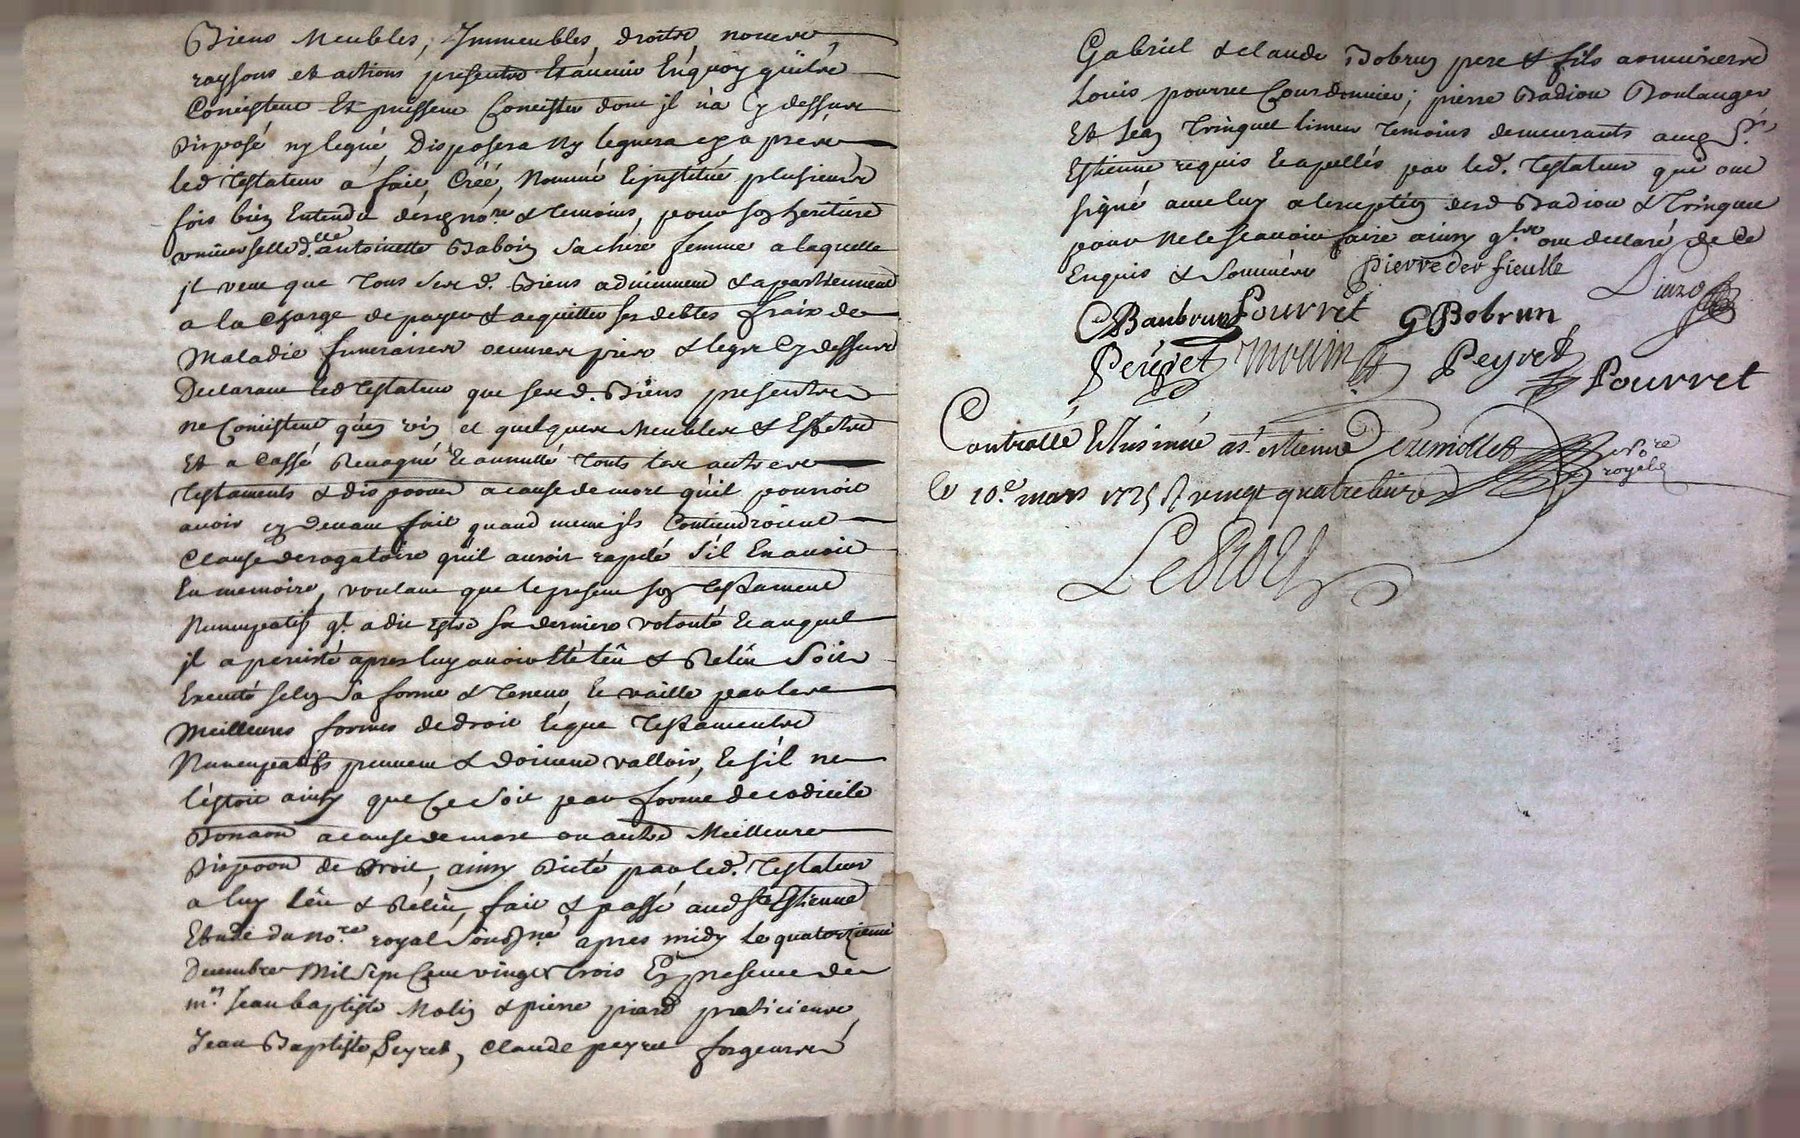 Biens Meubles, Immeubles, droits noms,
raysons et actions presents Et avenir En quoy qu'ils
Consistent Et puissent Consister dont jl n'a Cy dessus
Disposé ny legué Disposera Ny leguera cy apres
led Testateur á fait, Créé, Nommé Et jnstitué plusieurs
fois bien Entendu desd no.re & temoins, pour son heritiere
universelle d.lle antoinette Baboin sa chere femme a laquelle
jl veut que tous sesd. Biens adviennent & apartiennent
a la charge de payer & acquitter ses debtes fraix de
Maladie funeraires oeuvres pies & legs Cy dessus
Declarant led Testateur que sesd. Biens presents
ne Consistent qu'en vin et quelques Meubles & Effets
Et a Cassé Revoqué Et annullé touts les autres
Testaments & dispoons a cause de mort qu'il pourroit
avoir cy devant fait quand meme jls Contiendroient
Clause derogatoire qu'il auroit rapelé s'il En avoit
En memoire, voulant que le present son testament
Nuncupatif q'l a dit Estre sa derniere volonté Et auquel
jl a persisté apres luy avoir Eté lëu & Relëu soit
Executé selon sa forme & teneur Et vaille par les
Meilleures formes de droit Et que Testaments
Nuncupatifs peuvent & doivent valloir, Et s'il ne
l'estoit ainsy que Ce soit par forme de codicile
Donaon a cause de mort ou autre Meilleure
Dispoon de Droit, ainsy Dicté par led. Testateur
a luy lëu & Relëu, fait & passé aud St Estienne
Etude du no.re royal sousné apres midy le quatorzieme
Decembre Mil sept Cent vingt trois En presence de
m.rs Jean baptiste Molin & pierre piard praticiens,
Jean Baptiste Peyret, Claude peyret forgeurs
Gabriel & claude Bobrun pere & fils armuriers
Louis pourret Courdonnier; pierre Badiou Boulanger
Et Jean Trinquet limeur temoins demeurants aud St
Estienne requis Et apellés par led. Testateur qui ont
signé avec luy a l'exception desd Badiou & Trinquet
pour Ne le scavoir faire ainsy q'ls ont declaré de Ce
Enquis & Sommés Pierre der fieulle
C Baubrun Pourret G Bobrun
Peyret Molin Peyret
Pourret
Controllé Et Insinué a St. estienne No.re royal
le 10.e mars 1725 R vingt quatre livres
LeBlois